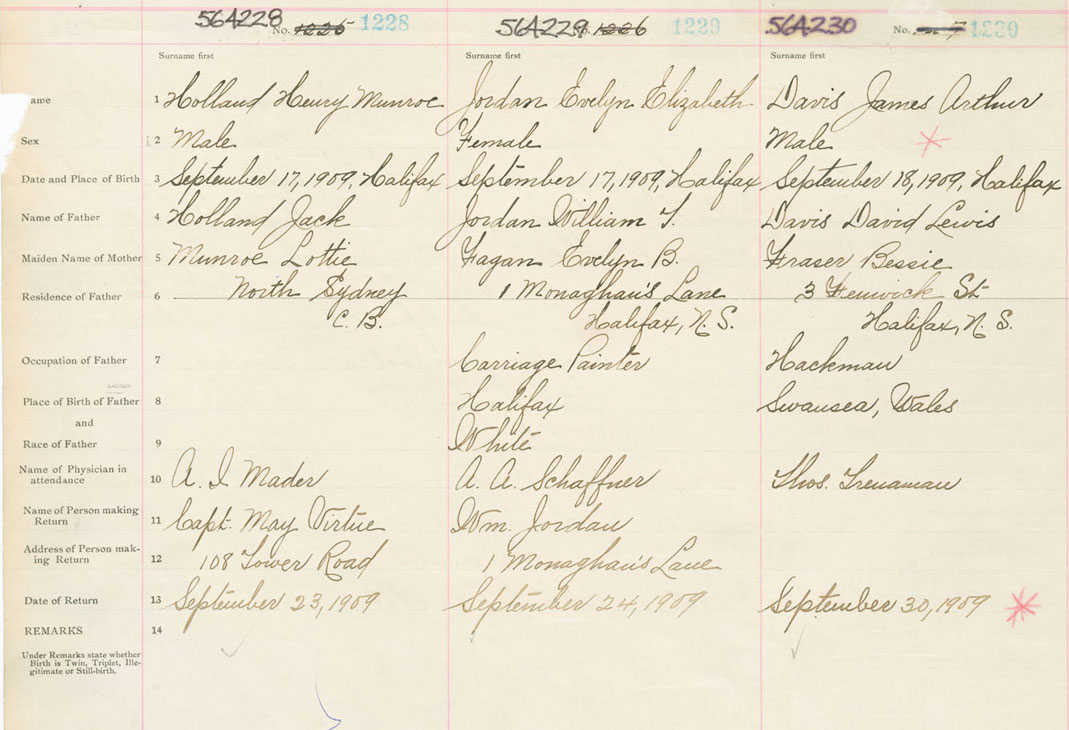 564228 No. 1226 1228
564229 No. 1226 1229
564230 No. 1230
Surname first Surname first Surname first
ame 1 Holland Henry Munroe Jordan Evelyn Elizabeth Davis James Arthur
Sex 2 Male Female Male
Date and Place of Birth 3 September 17, 1909, Halifax September 17, 1909, Halifax September 18, 1909, Halifax
Name of Father 4 Holland Jack Jordan William T. Davis David Lewis
Maiden Name of Mother 5 Munroe Lottie Fagan Evelyn B. Fraser Bessie
Residence of Father 6 North Sydney 1 Monaghan's Lane 3 Fenwick St
C. B. Halifax, N. S. Halifax, N. S.
Occupation of Father 7 Carriage Painter Hackman
Place of Birth of Father 8 Halifax Swansea, Wales
and
Race of Father 9 White
Name of Physician in
attendance 10 A. I Mader A. A. Schaffner Thos. Trenaman
Name of Person making
Return 11 Capt. May Virtue Wm. Jordan
Address of Person mak-
ing Return 12 108 Tower Road 1 Monaghan's Lane
Date of Return 13 September 23, 1909 September 24, 1909 September 30, 1909
REMARKS 14
Under Remarks state whether
Birth is Twin, Triplet, Ille-
gitimate or Still-birth.